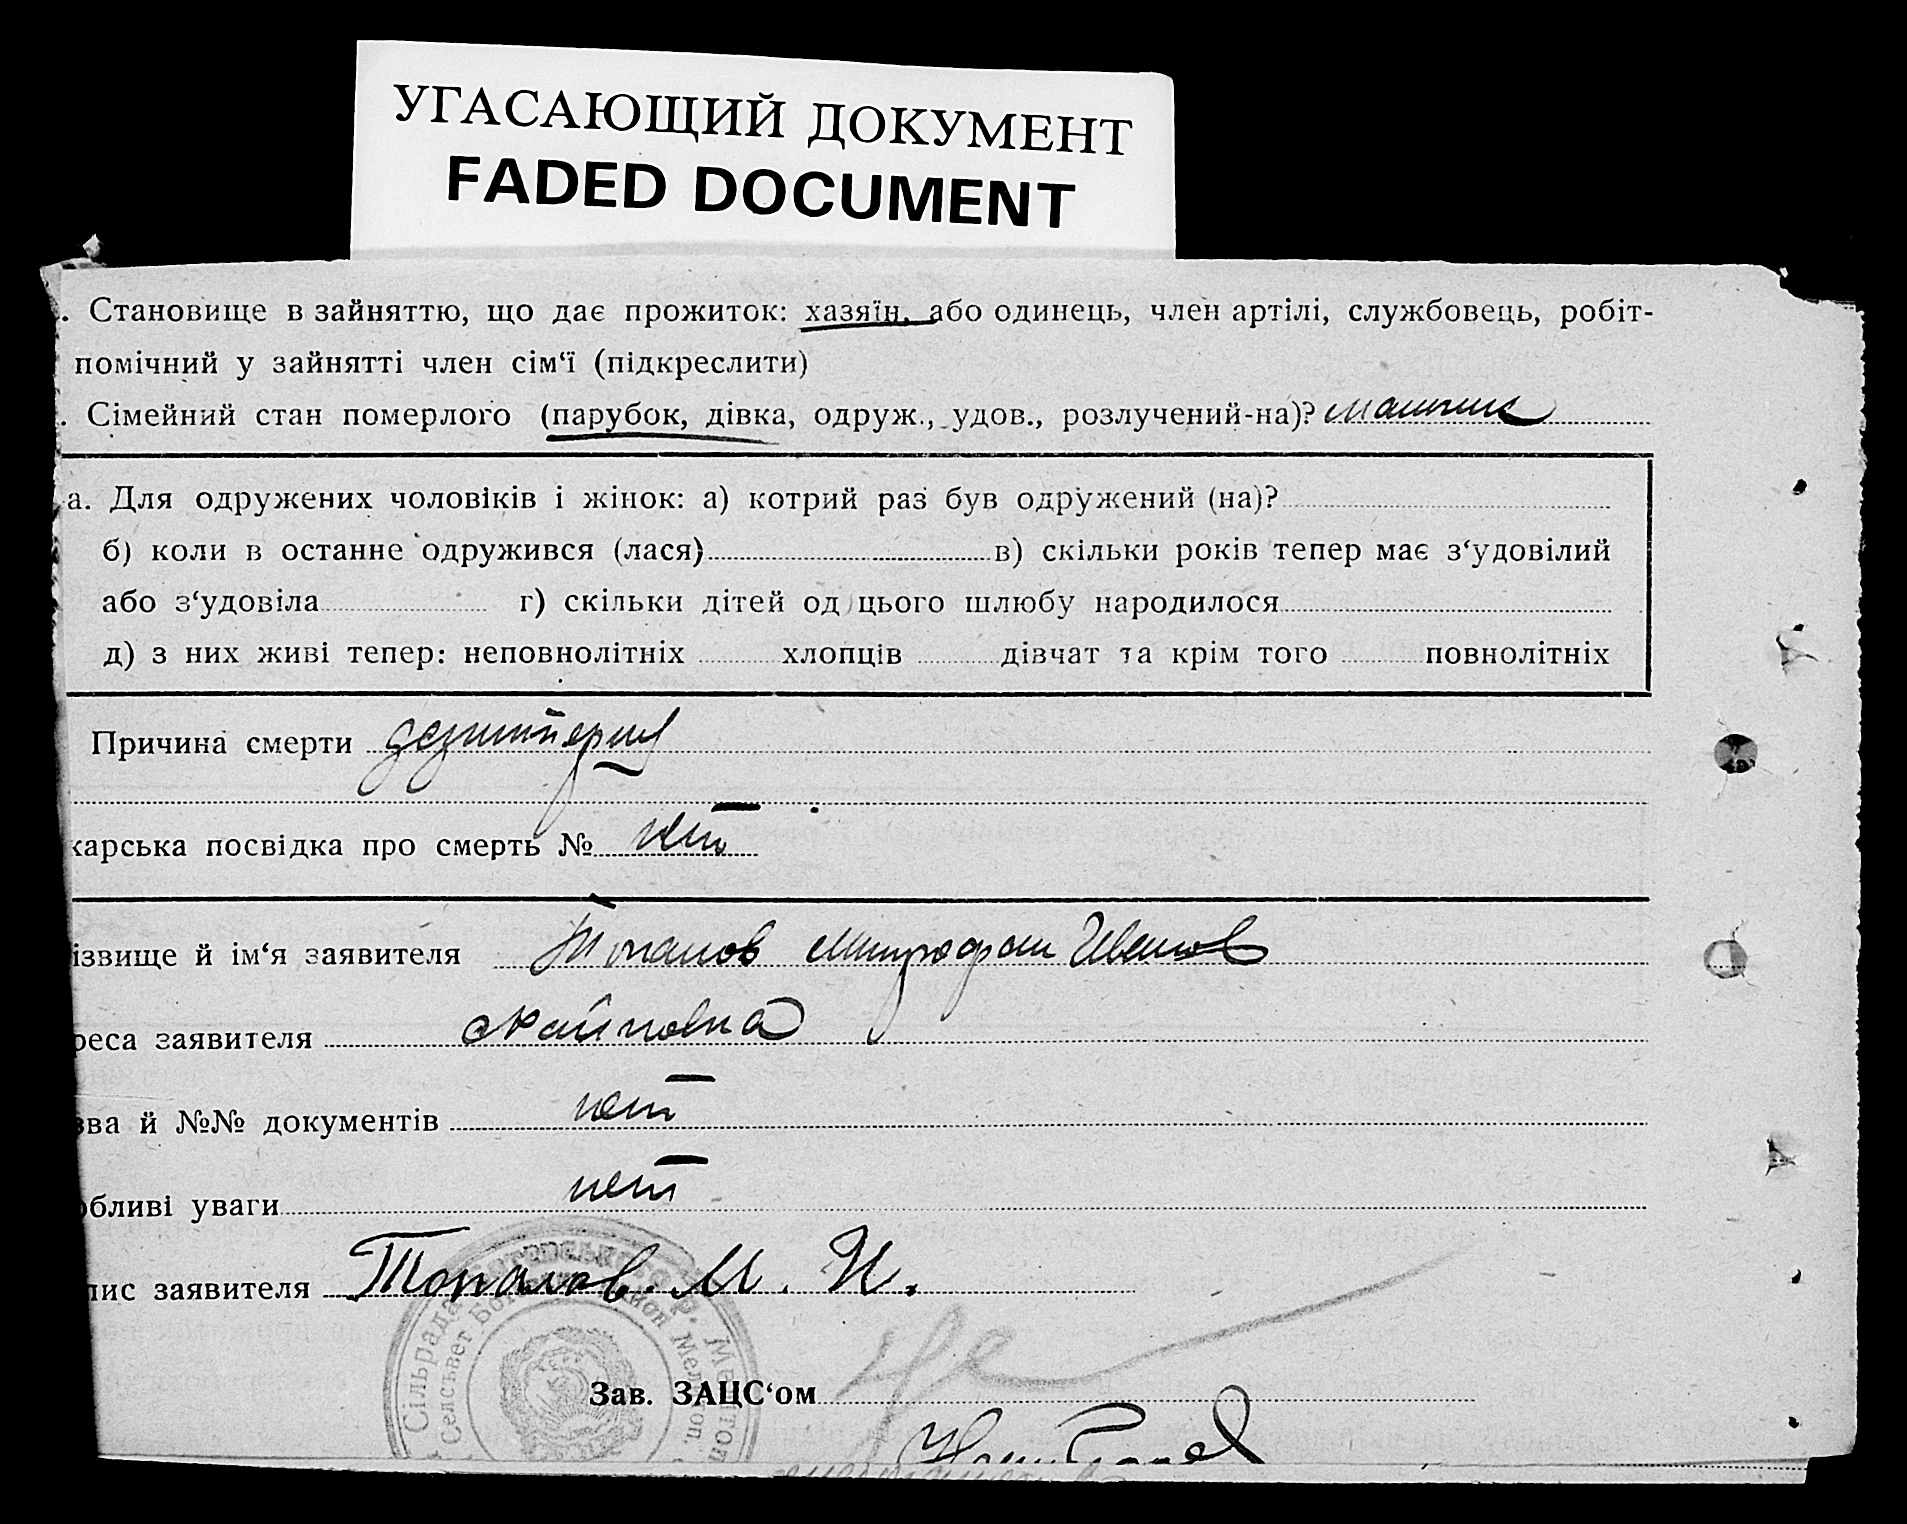 УГАСАЮЩИЙ ДОКУМЕНТ
FADED DOCUMENT
. Становище в зайняттю, що дає прожиток: хазяїн, або одинець, член артілі, службовець, робіт-
помічний у зайнятті член сім‘ї (підкреслити)
. Сімейний стан померлого (парубок, дівка, одруж., удов., розлучений-на)?
а. Для одружених чоловіків і жінок: а) котрий раз був одружений (на)?
б) коли в останне одружився (лася) в) скільки років тепер має з‘удовілий
або з‘удовіла г) скільки дітей од цього шлюбу народилося
д) з них живі тепер: неповнолітніх хлопців дівчат та крім того повнолітніх
Причина смерти
карська посвідка про смерть № нет
ізвище й ім‘я заявителя Топалов Митрофан Иванов
реса заявителя
зва й №№ документів нет
обливі уваги нет
пис заявителя Топалов. М. И.
Сільрада
Селсьвет
Зав. ЗАЦС‘ом